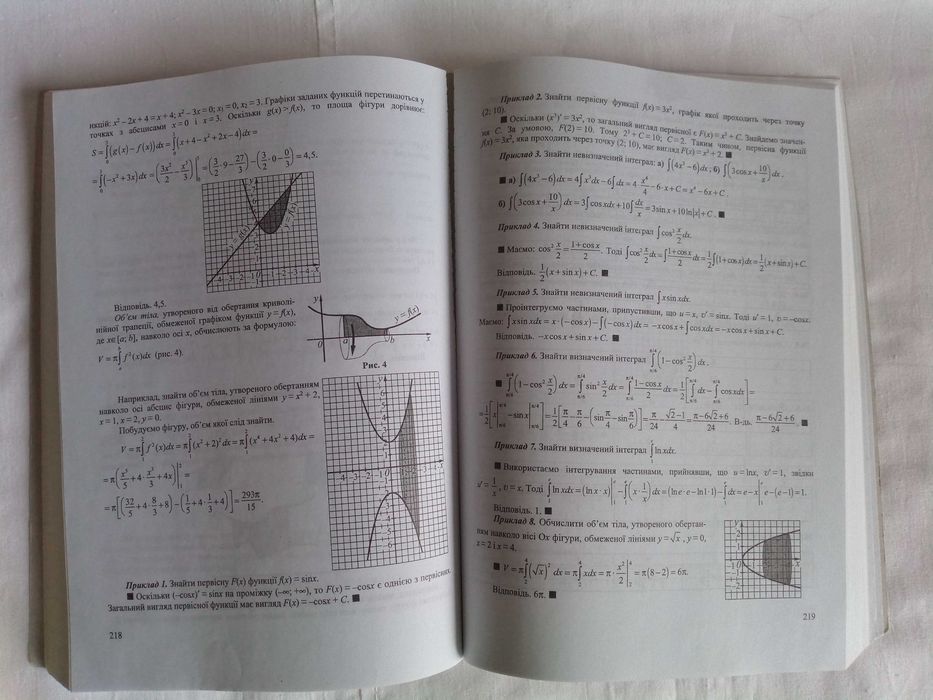 нкцій: x² – 2x + 4 = x + 4; x² – 3x = 0; x₁ = 0, x₂ = 3. Графіки заданих функцій перетинаються у
точках з абсцисами x = 0 і x = 3. Оскільки g(x) > f(x), то площа фігури дорівнює:
S = ∫₀³(g(x) – f(x))dx = ∫₀³(x + 4 – x² + 2x – 4)dx =
= ∫₀³(–x² + 3x)dx = (3x²/2 – x³/3)|₀³ = (3/2·9 – 27/3) – (3/2·0 – 0/3) = 4,5.
y = g(x)
y = f(x)
Відповідь. 4,5.
Об'єм тіла, утвореного від обертання криволі-
нійної трапеції, обмеженої графіком функції y = f(x),
де x∈[a; b], навколо осі x, обчислюють за формулою:
V = π∫ₐᵇ f²(x)dx (рис. 4).
y
y = f(x)
0 a b x
Рис. 4
Наприклад, знайти об'єм тіла, утвореного обертанням
навколо осі абсцис фігури, обмеженої лініями y = x² + 2,
x = 1, x = 2, y = 0.
Побудуємо фігуру, об'єм якої слід знайти.
V = π∫₁² f²(x)dx = π∫₁²(x² + 2)²dx = π∫₁²(x⁴ + 4x² + 4)dx =
= π(x⁵/5 + 4·x³/3 + 4x)|₁² =
= π[(32/5 + 4·8/3 + 8) – (1/5 + 4·1/3 + 4)] = 293π/15.
Приклад 1. Знайти первісну F(x) функції f(x) = sinx.
■ Оскільки (–cosx)′ = sinx на проміжку (–∞; +∞), то F(x) = –cosx є однією з первісних.
Загальний вигляд первісної функції має вигляд F(x) = –cosx + C. ■
218
Приклад 2. Знайти первісну функції f(x) = 3x², графік якої проходить через точку
(2; 10).
■ Оскільки (x³)′ = 3x², то загальний вигляд первісної є F(x) = x³ + C. Знайдемо значен-
ня C. За умовою, F(2) = 10. Тому 2³ + C = 10; C = 2. Таким чином, первісна функції
f(x) = 3x², яка проходить через точку (2; 10), має вигляд F(x) = x³ + 2. ■
Приклад 3. Знайти невизначений інтеграл: а) ∫(4x³ – 6)dx; б) ∫(3cosx + 10/x)dx.
■ а) ∫(4x³ – 6)dx = 4∫x³dx – 6∫dx = 4·x⁴/4 – 6·x + C = x⁴ – 6x + C.
б) ∫(3cosx + 10/x)dx = 3∫cosxdx + 10∫dx/x = 3sinx + 10ln|x| + C. ■
Приклад 4. Знайти невизначений інтеграл ∫cos²x/2 dx.
■ Маємо: cos²x/2 = (1 + cosx)/2. Тоді ∫cos²x/2 dx = ∫(1 + cosx)/2 dx = 1/2∫(1 + cosx)dx = 1/2(x + sinx) + C.
Відповідь. 1/2(x + sinx) + C. ■
Приклад 5. Знайти невизначений інтеграл ∫xsinxdx.
■ Проінтегруємо частинами, припустивши, що u = x, v′ = sinx. Тоді u′ = 1, v = –cosx.
Маємо: ∫xsinxdx = x·(–cosx) – ∫(–cosx)dx = –xcosx + ∫cosxdx = –xcosx + sinx + C.
Відповідь. –xcosx + sinx + C. ■
Приклад 6. Знайти визначений інтеграл ∫(1 – cos²x/2)dx.
■ ∫(1 – cos²x/2)dx = ∫sin²x/2 dx = ∫(1 – cosx)/2 dx = 1/2[∫dx – ∫cosxdx] =
= 1/2[x| – sinx|] = 1/2[π/4 – π/6 – (sin π/4 – sin π/6)] = π/24 – (√2 – 1)/4 = (π – 6√2 + 6)/24. В-дь. (π – 6√2 + 6)/24. ■
Приклад 7. Знайти визначений інтеграл ∫₁ᵉ lnxdx.
■ Використаємо інтегрування частинами, прийнявши, що u = lnx, v′ = 1, звідки
u′ = 1/x, v = x. Тоді ∫₁ᵉ lnxdx = (lnx·x)|₁ᵉ – ∫₁ᵉ(x·1/x)dx = (lne·e – ln1·1) – ∫₁ᵉdx = e – x|₁ᵉ = e – (e – 1) = 1.
Відповідь. 1. ■
Приклад 8. Обчислити об'єм тіла, утвореного обертан-
ням навколо вісі Ox фігури, обмеженої лініями y = √x, y = 0,
x = 2 і x = 4.
■ V = π∫₂⁴(√x)²dx = π∫₂⁴xdx = π·x²/2|₂⁴ = π(8 – 2) = 6π.
Відповідь. 6π. ■
219